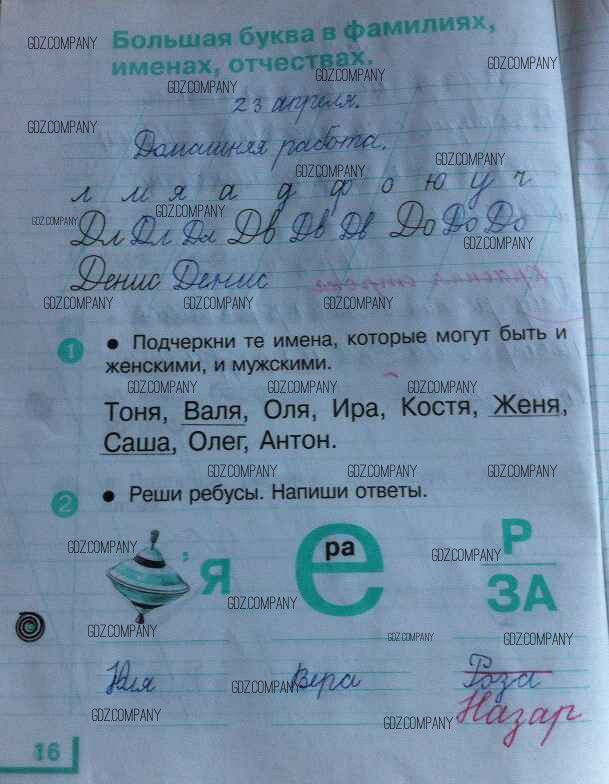 Большая буква в фамилиях,
именах, отчествах.
23 апреля.
Домашняя работа.
л м я а д ф о ю у ч
Дл Дл Дл Дв Дв Дв До До До
Денис Денис
1 • Подчеркни те имена, которые могут быть и
женскими, и мужскими.
Тоня, Валя, Оля, Ира, Костя, Женя,
Саша, Олег, Антон.
2 • Реши ребусы. Напиши ответы.
, Я е ра Р
ЗА
Юля Вера Роза
Назар
16
GDZ.COMPANY